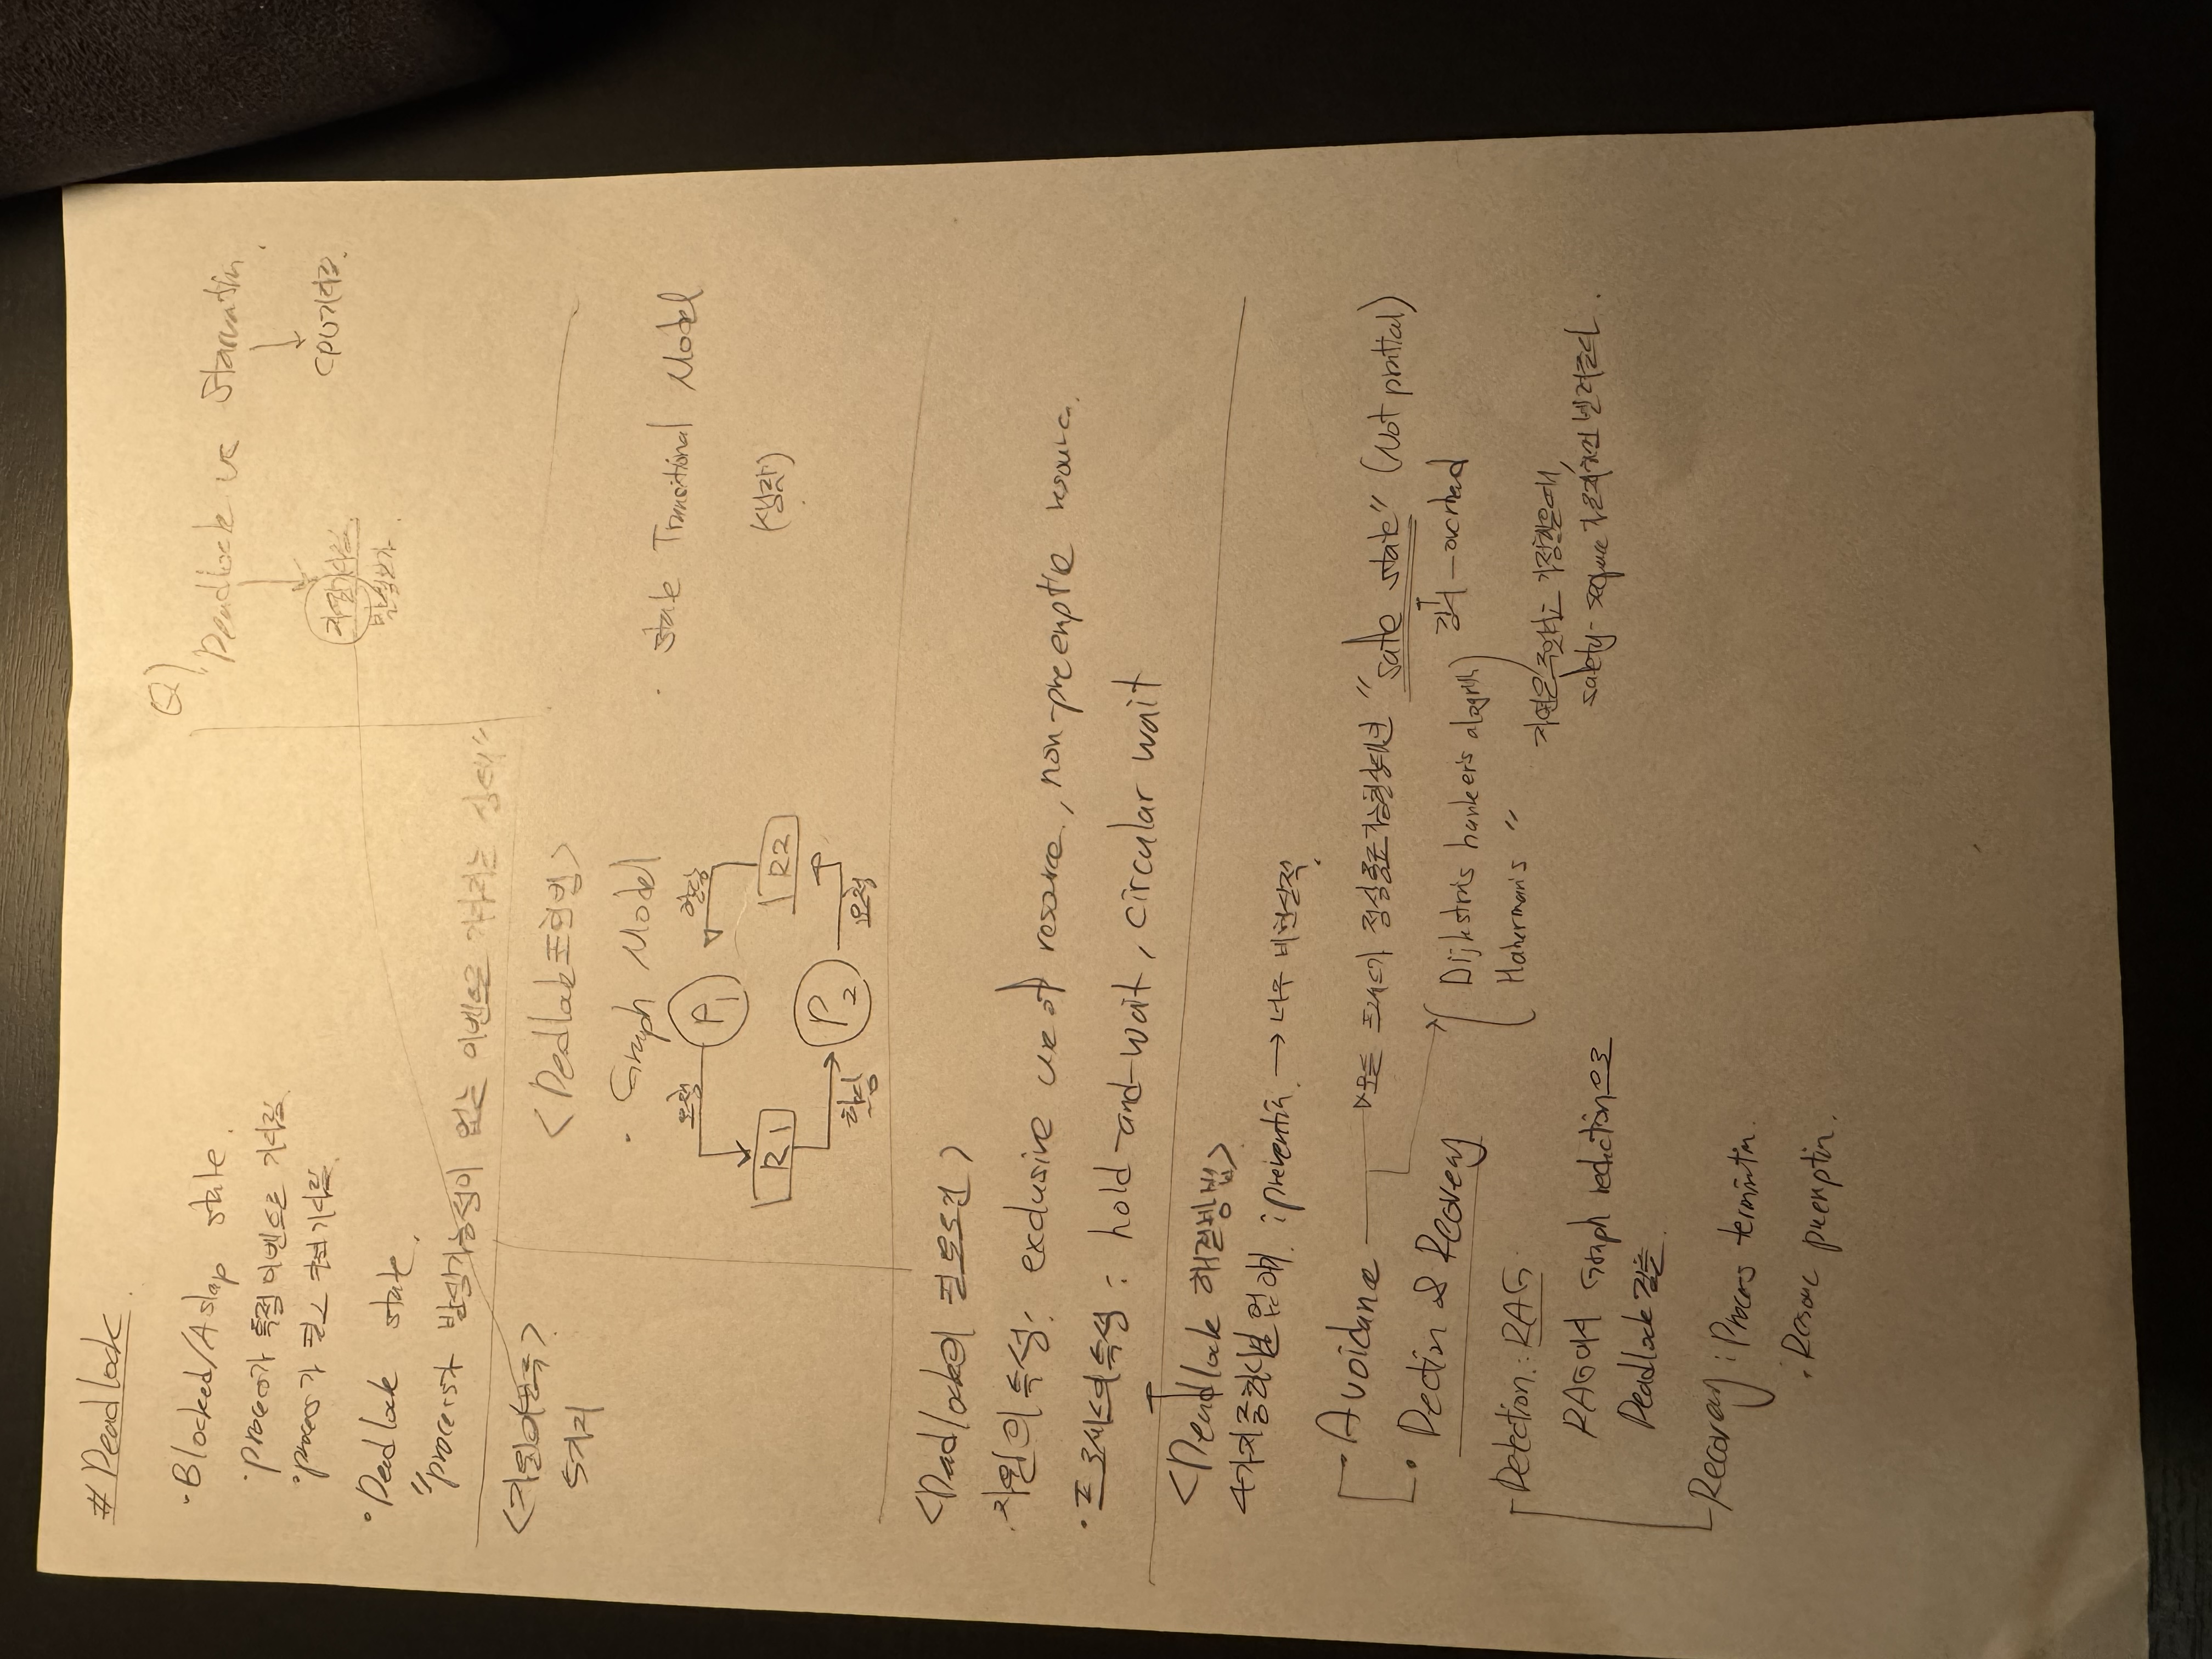 # Deadlock
· Blocked/Asleep state.
· process가 특정 이벤트를 기다림
· process가 필요 자원 기다림
· Deadlock state.
"process가 발생가능성이 없는 이벤트를 기다리는 상태"
Q)
Deadlock vs Starvatin
자원기다림.
발생불가.
CPU기다림.
<자원>
5가지
<Dedlock표현법>
· Graph Model
요청
P1
할당
R1
R2
할당
P2
요청
· State Transitional Model
(생략)
<Deadlock의 필요조건>
· 자원의 특성: exclusive use of resource, non-preemptie resource.
· 프로세스의 특성: hold-and-wait, circular wait
<Deadlock 해결방법>
4가지중하나를 없애 : preventin. → 너무 비현실적.
· Avoidance
모든 프로세스가 정상종료가능한상태면 "safe state" (Not prattial)
· Dectin & Recovery
-overhead
Dijkstra's banker's alogrith
Haberman's "
자원을 주었다고 가정했을때,
safety-sequece 빌려준다.
Detection: RAG
RAG에서 Graph reduction으로
Deadlock 검출.
Recovery : Process termintin.
· Resouc preemptin.